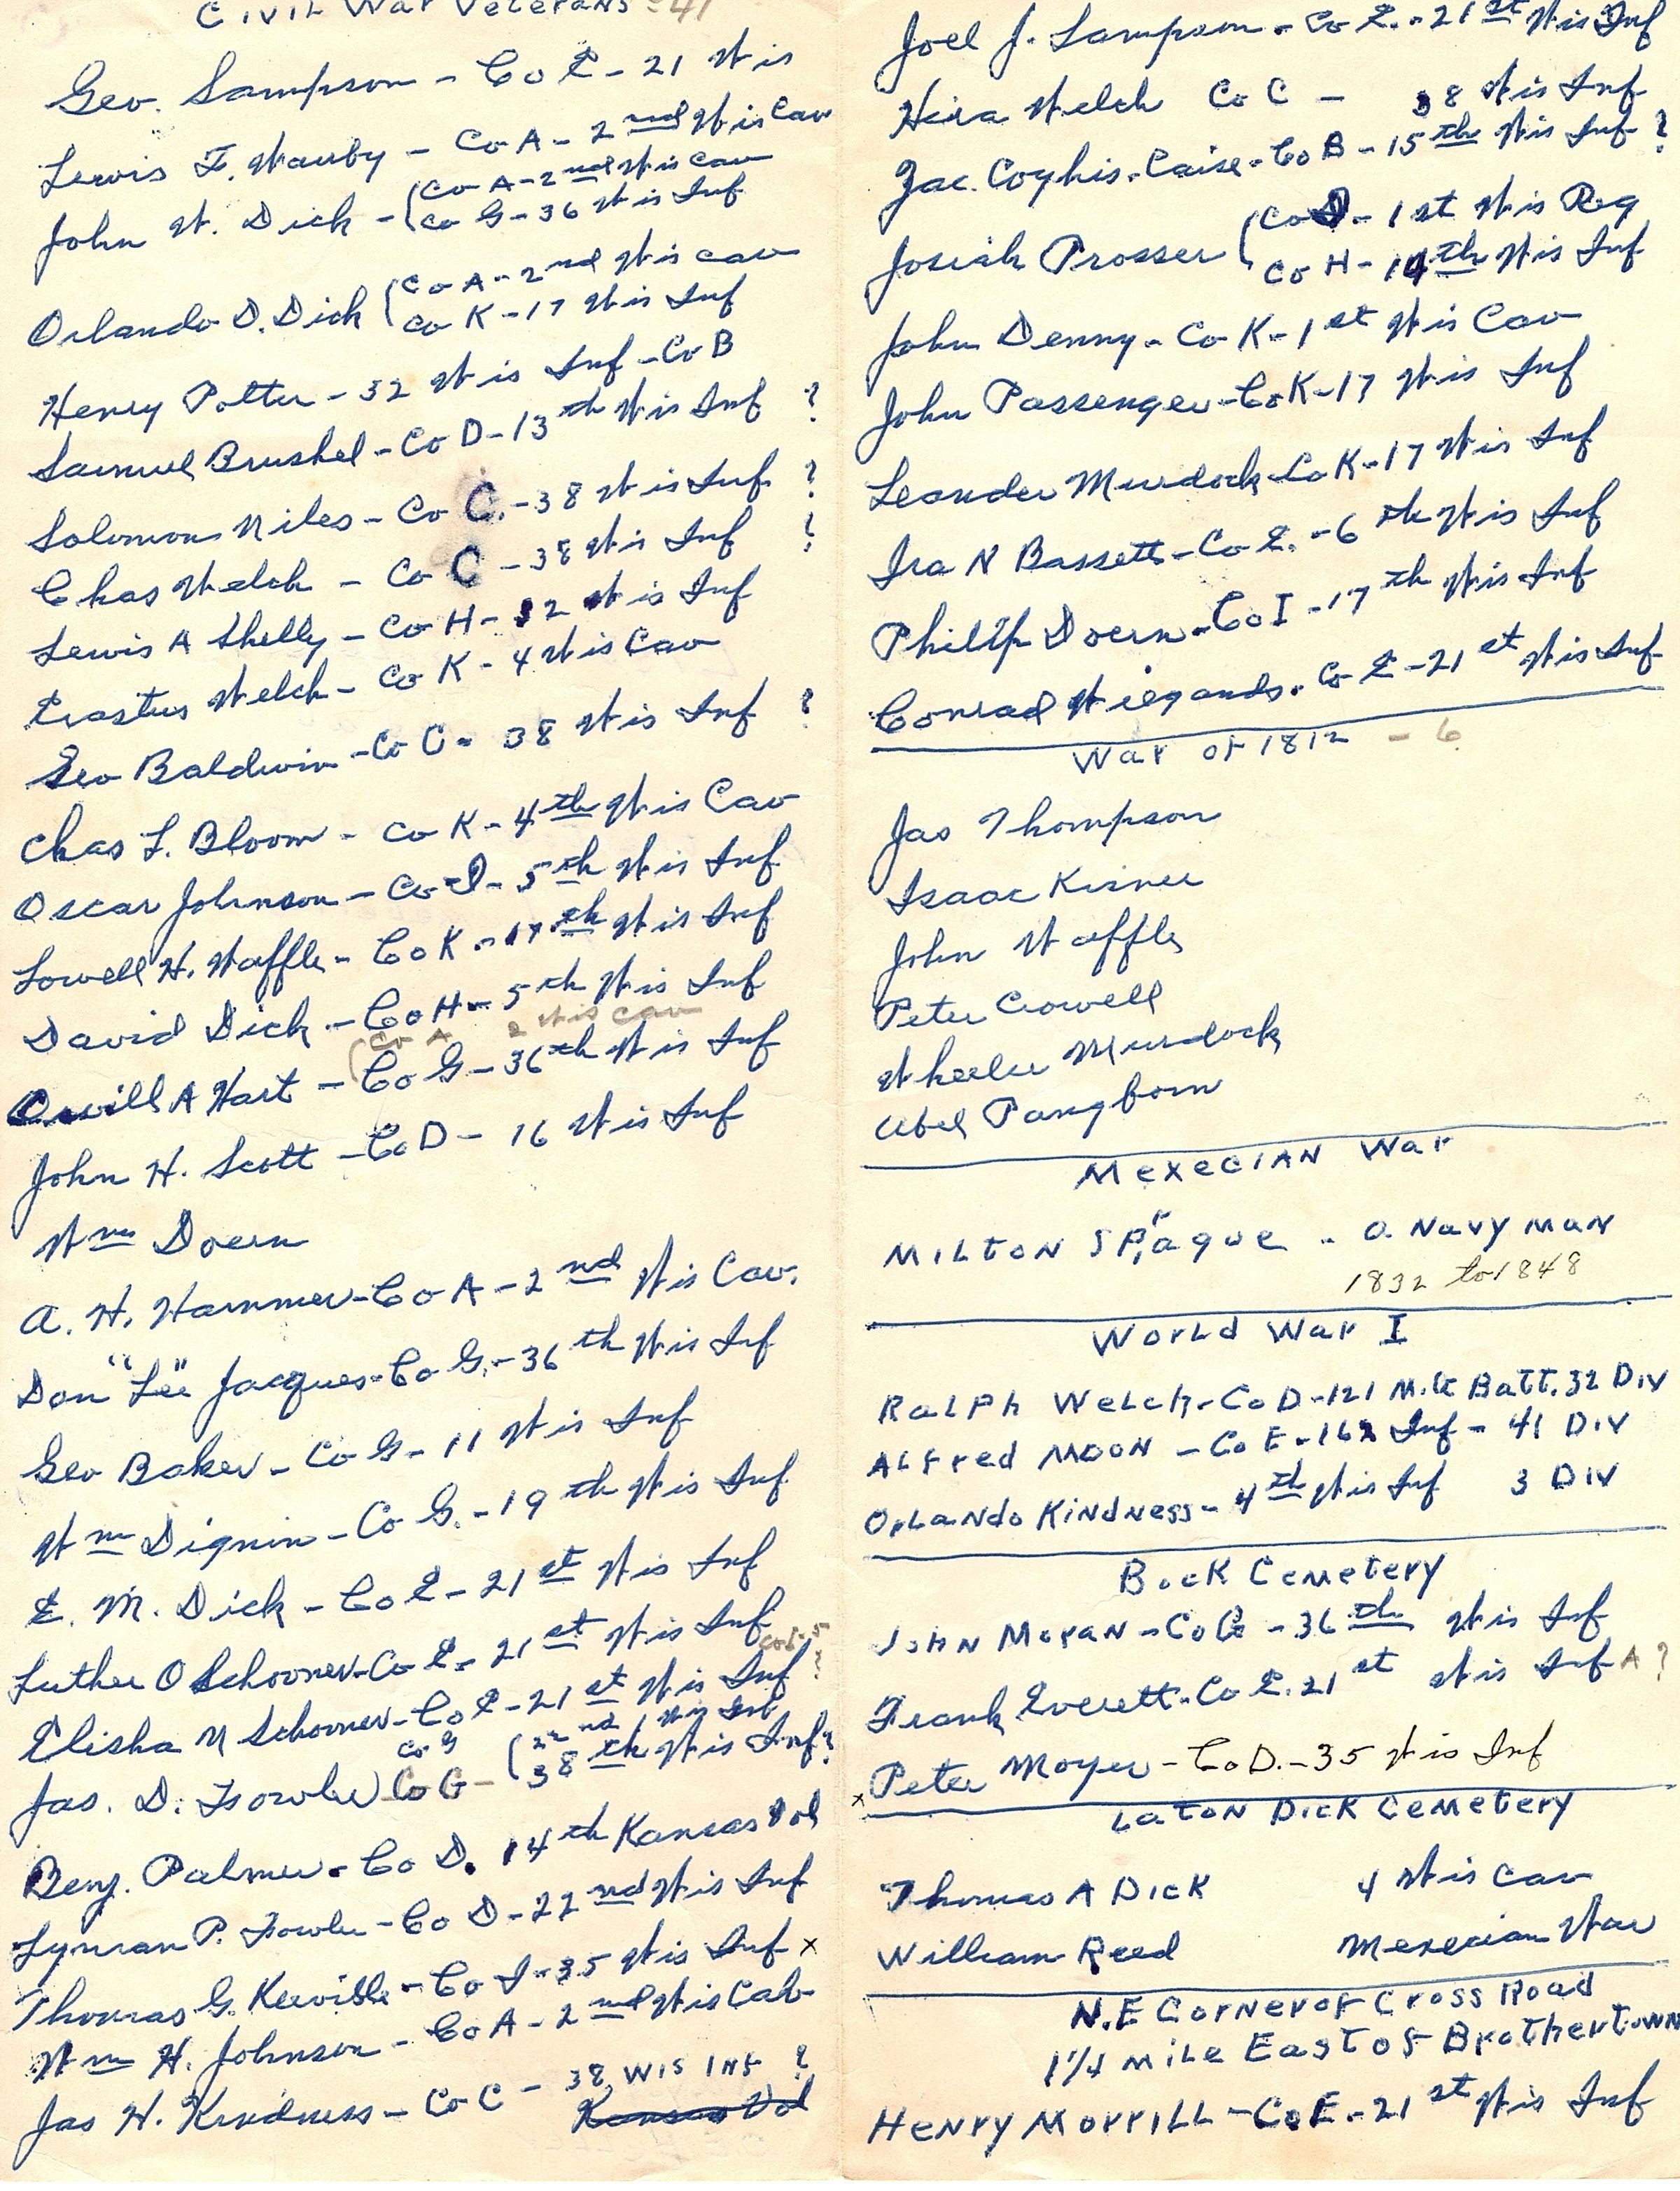 Civil War Veterans - 41
Geo. Sampson - Co E - 21 Wis
Lewis F. Hauby - Co A - 2nd Wis Cav
John W. Dick - Co A - 2nd Wis Cav
Co G - 36 Wis Inf
Orlando D. Dick Co A - 2nd Wis Cav
Co K - 17 Wis Inf
Henry Potter - 32 Wis Inf - Co B
Samuel Brushel - Co D - 13th Wis Inf ?
Solomon Niles - Co C. - 38 Wis Inf. ?
Chas Welch - Co C - 38 Wis Inf ?
Lewis A Shelly - Co H - 32 Wis Inf
Erastus Welch - Co K - 4 Wis Cav
Geo Baldwin - Co C - 38 Wis Inf ?
Chas L. Bloom - Co K - 4th Wis Cav
Oscar Johnson - Co I - 5th Wis Inf
Lowell H. Waffle - Co K - 17th Wis Inf
David Dick - Co H - 5th Wis Inf
Co A 2 Wis Cav
Orvill A Hart - Co G - 36th Wis Inf
John H. Scott - Co D - 16 Wis Inf
Wm Doern
A. H. Hammer - Co A - 2nd Wis Cav.
Don "Lee" Jacques - Co G. - 36th Wis Inf
Geo Baker - Co G - 11 Wis Inf
Wm Dignin - Co G. - 19th Wis Inf
E. M. Dick - Co E - 21st Wis Inf
Luther O Schooner - Co E - 21st Wis Inf
Co I - 5
Elisha N Schooner - Co E - 21st Wis Inf ?
Co G 22nd Wis Inf
Jas. D. Fowler Co G - 38th Wis Inf ?
Benj. Palmer - Co D. 14th Kansas Vol
Lyman P. Fowler - Co D - 22nd Wis Inf
Thomas G. Keville - Co I - 35 Wis Inf x
Wm H. Johnson - Co A - 2nd Wis Cav
Jas H. Kindness - Co C - 38 Wis Inf ?
Kansas Vol
Joel J. Sampson - Co E. - 21st Wis Inf
Hira Welch Co C - 38 Wis Inf
Jac. Coyhis - Caise - Co B - 15th Wis Inf ?
Josiah Prosser Co D - 1st Wis Reg
Co H - 14th Wis Inf
John Denny - Co K - 1st Wis Cav
John Passenger - Co K - 17 Wis Inf
Leander Murdock - Co K - 17 Wis Inf
Ira N Bassett - Co E. - 6th Wis Inf
Philip Doern - Co I - 17th Wis Inf
Conrad Wiegands - Co E - 21st Wis Inf
War of 1812 - 6
Jas Thompson
Isaac Kisner
John Waffle
Peter Crowell
Wheeler Murdock
Abel Pangborn
Mexecian War
Milton Sprague - O. Navy man
1832 to 1848
World War I
Ralph Welch - Co D - 121 M.G Batt. 32 Div
Alfred Moon - Co E - 162 Inf - 41 Div
Orlando Kindness - 4th Wis Inf 3 Div
Bock Cemetery
John Moran - Co G - 36th Wis Inf
Frank Everett - Co E. 21st Wis Inf A ?
x Peter Moyer - Co D. - 35 Wis Inf
Laton Dick Cemetery
Thomas A Dick 4 Wis Cav
William Reed Mexecian War
N.E Corner of Cross Road
1 1/4 mile East of Brothertown
Henry Morrill - Co E - 21st Wis Inf